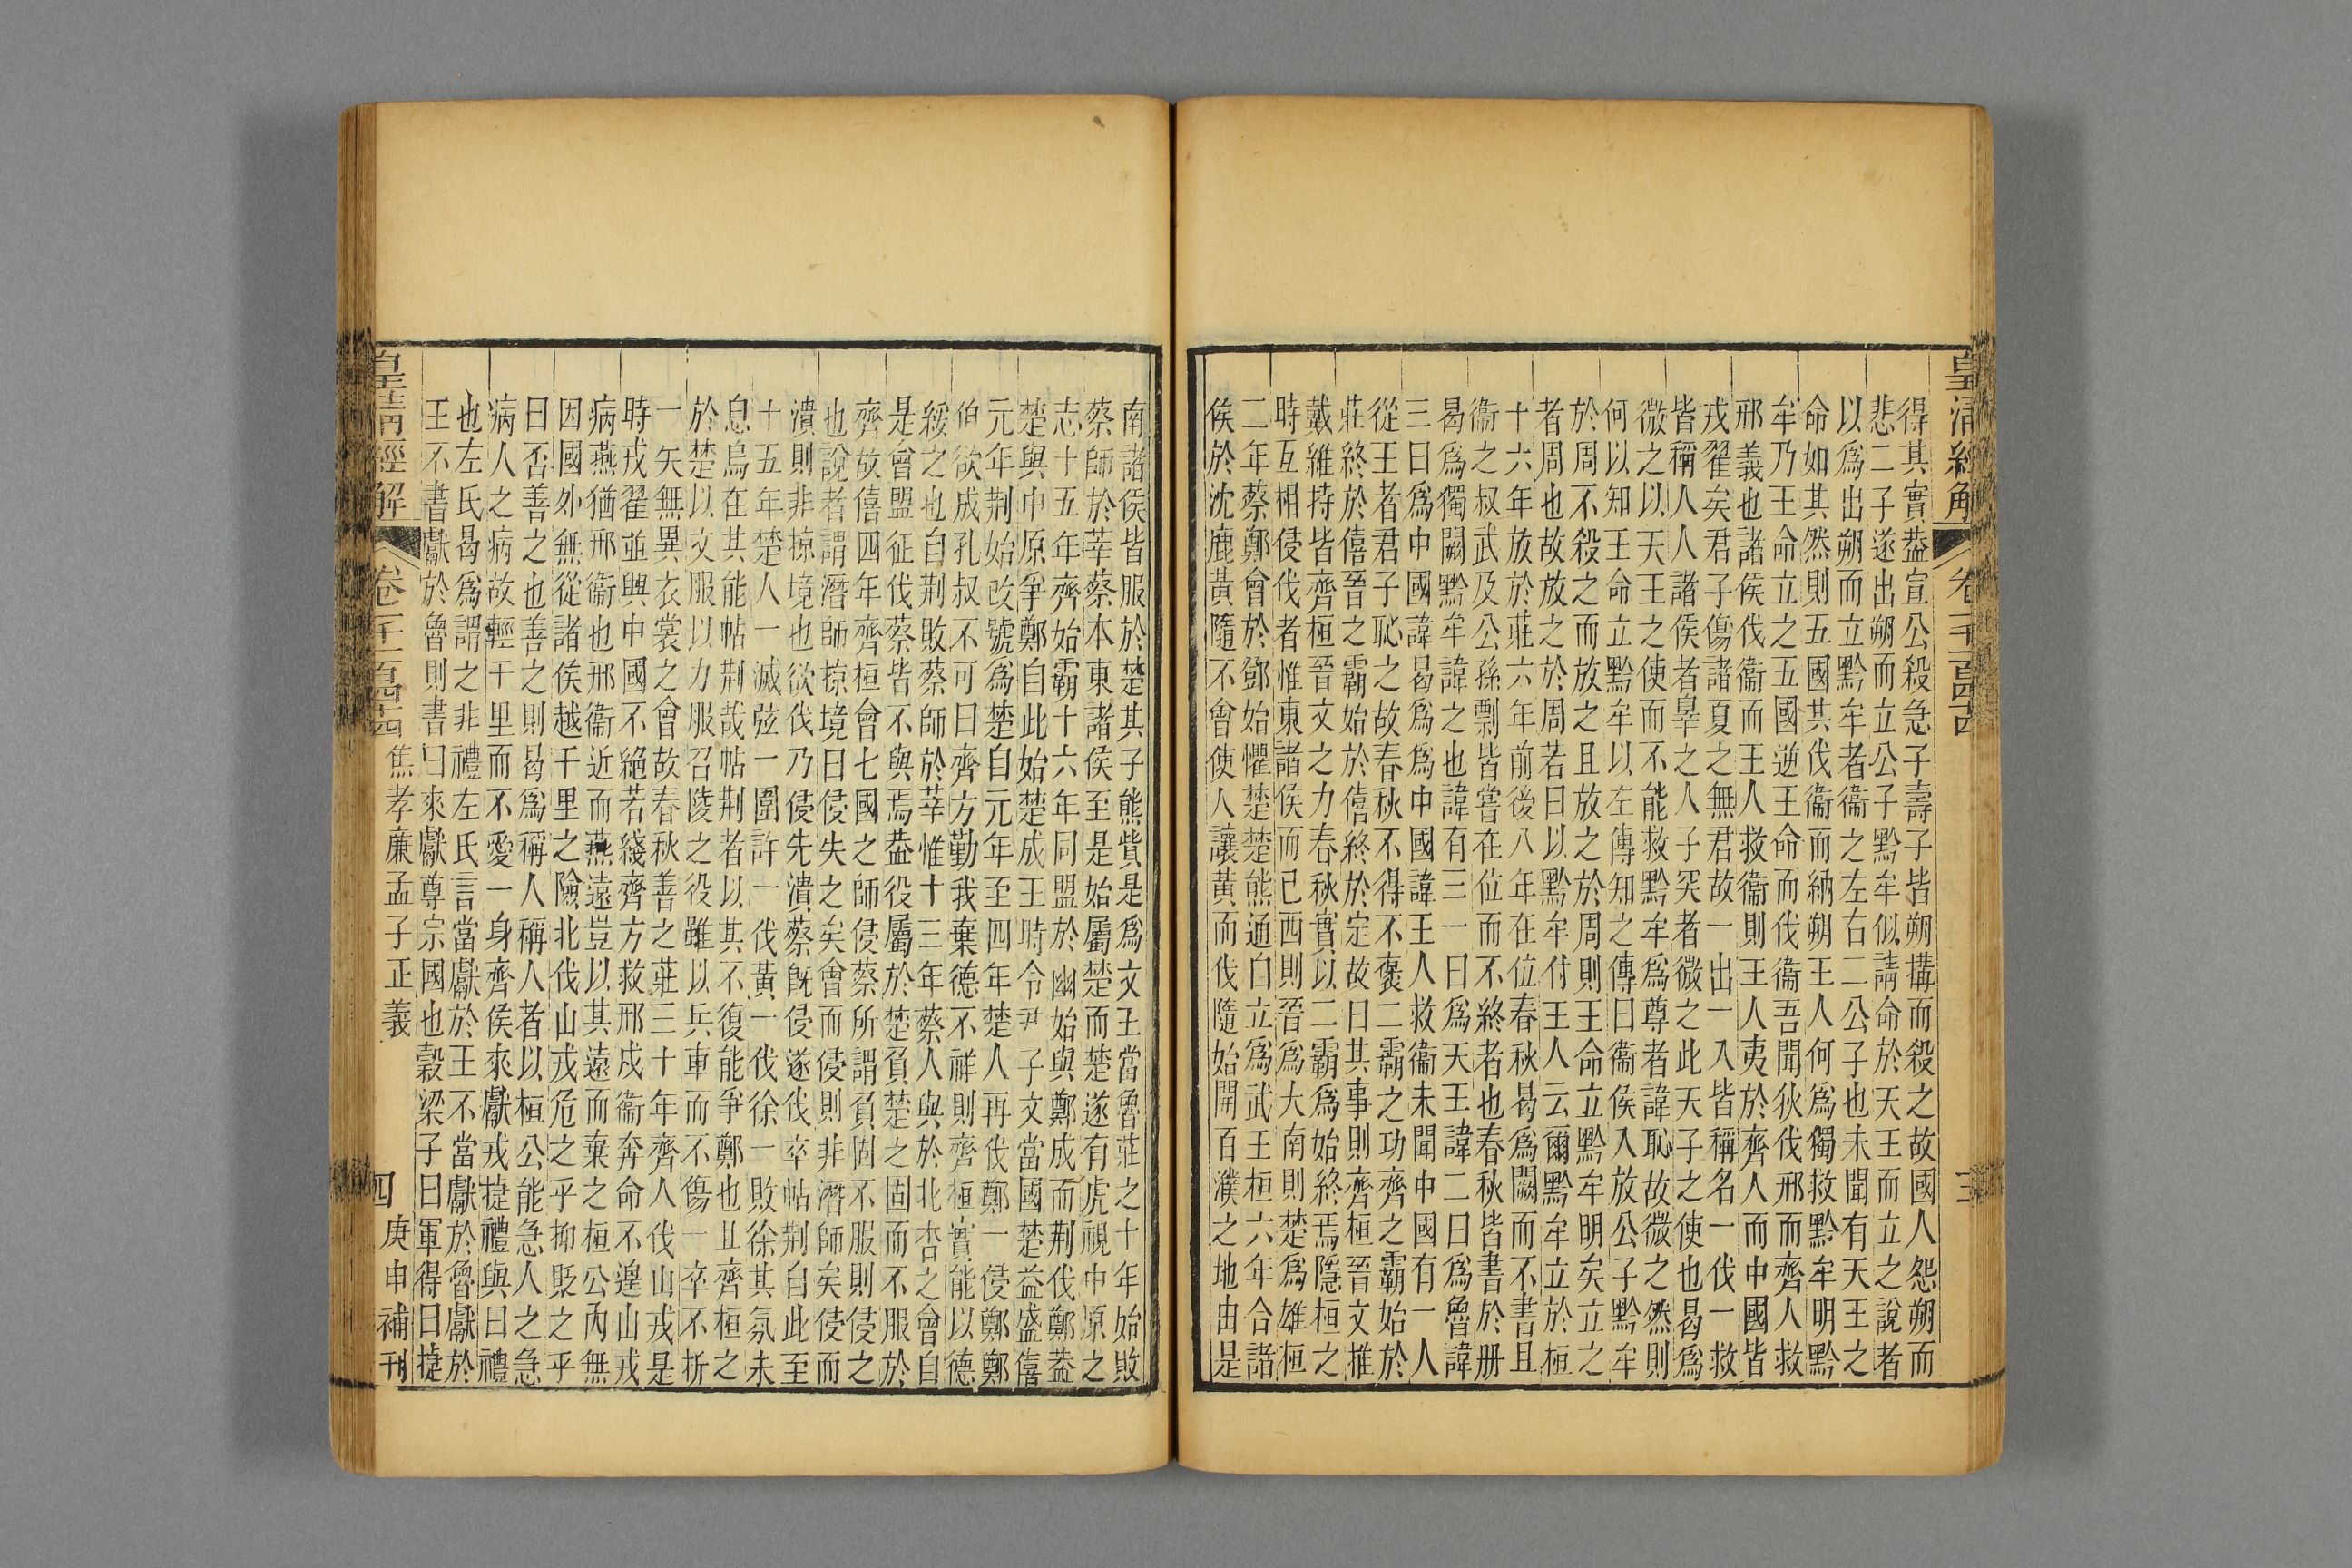 皇清經解
卷一千一百四十四
三
得其實葢宣公殺急子壽子皆朔搆而殺之故國人怨朔而
悲二子遂出朔而立公子黔牟似請命於天王而立之說者
以爲出朔而立黔牟者衞之左右二公子也未聞有天王之
命如其然則五國其伐衞而納朔王人何爲獨救黔牟明黔
牟乃王命立之五國逆王命而伐衞吾聞狄伐邢而齊人救
邢義也諸侯伐衞而王人救衞則王人夷於齊人而中國皆
戎翟矣君子傷諸夏之無君故一出一入皆稱名一伐一救
皆稱人人諸侯者辠之人子突者微之此天子之使也曷爲
微之以天王之使而不能救黔牟爲尊者諱恥故微之然則
何以知王命立黔牟以左傳知之傳曰衞侯入放公子黔牟
於周不殺之而放之且放之於周則王命立黔牟明矣立之
者周也故放之於周若曰以黔牟付王人云爾黔牟立於桓
十六年放於莊六年前後八年在位春秋曷爲闕而不書且
衞之叔武及公孫剽皆嘗在位而不終者也春秋皆書於册
曷爲獨闕黔牟諱之也諱有三一曰爲天王諱二曰爲魯諱
三曰爲中國諱曷爲爲中國諱王人救衞未聞中國有一人
從王者君子恥之故春秋不得不褒二霸之功齊之霸始於
莊終於僖晉之霸始於僖終於定故曰其事則齊桓晉文推
戴維持皆齊桓晉文之力春秋實以二霸爲始終焉隱桓之
時互相侵伐者惟東諸侯而已西則晉爲大南則楚爲雄桓
二年蔡鄭會於鄧始懼楚楚熊通自立爲武王桓六年合諸
侯於沈鹿黃隨不會使人讓黃而伐隨始開百濮之地由是
南諸侯皆服於楚其子熊貲是爲文王當魯莊之十年始敗
蔡師於莘蔡本東諸侯至是始屬楚而楚遂有虎視中原之
志十五年齊始霸十六年同盟於幽始與鄭成而荆伐鄭葢
楚與中原爭鄭自此始楚成王時令尹子文當國楚益盛僖
元年荆始改號爲楚自元年至四年楚人再伐鄭一侵鄭鄭
伯欲成孔叔不可曰齊方勤我棄德不祥則齊桓實能以德
綏之也自荆敗蔡師於莘惟十三年蔡人與於北杏之會自
是會盟征伐蔡皆不與焉葢役屬於楚負楚之固而不服於
齊故僖四年齊桓會七國之師侵蔡所謂負固不服則侵之
也說者謂潛師掠境曰侵失之矣會而侵則非潛師矣侵而
潰則非掠境也欲伐乃侵先潰蔡旣侵遂伐卒帖荆自此至
十五年楚人一滅弦一圍許一伐黃一伐徐一敗徐其氛未
息烏在其能帖荆哉帖荆者以其不復能爭鄭也且齊桓之
於楚以文服以力服召陵之役雖以兵車而不傷一卒不折
一矢無異衣裳之會故春秋善之莊三十年齊人伐山戎是
時戎翟竝與中國不絕若綫齊方救邢戍衞奔命不遑山戎
病燕猶邢衞也邢衞近而燕遠豈以其遠而棄之桓公內無
因國外無從諸侯越千里之險北伐山戎危之乎抑貶之乎
曰否善之也善之則曷爲稱人稱人者以桓公能急人之急
病人之病故輕千里而不愛一身齊侯來獻戎捷禮與曰禮
也左氏曷爲謂之非禮左氏言當獻於王不當獻於魯獻於
王不書獻於魯則書曰來獻尊宗國也穀梁子曰軍得曰捷
皇清經解
卷一千一百四十四
焦孝廉孟子正義
四
庚申補刊